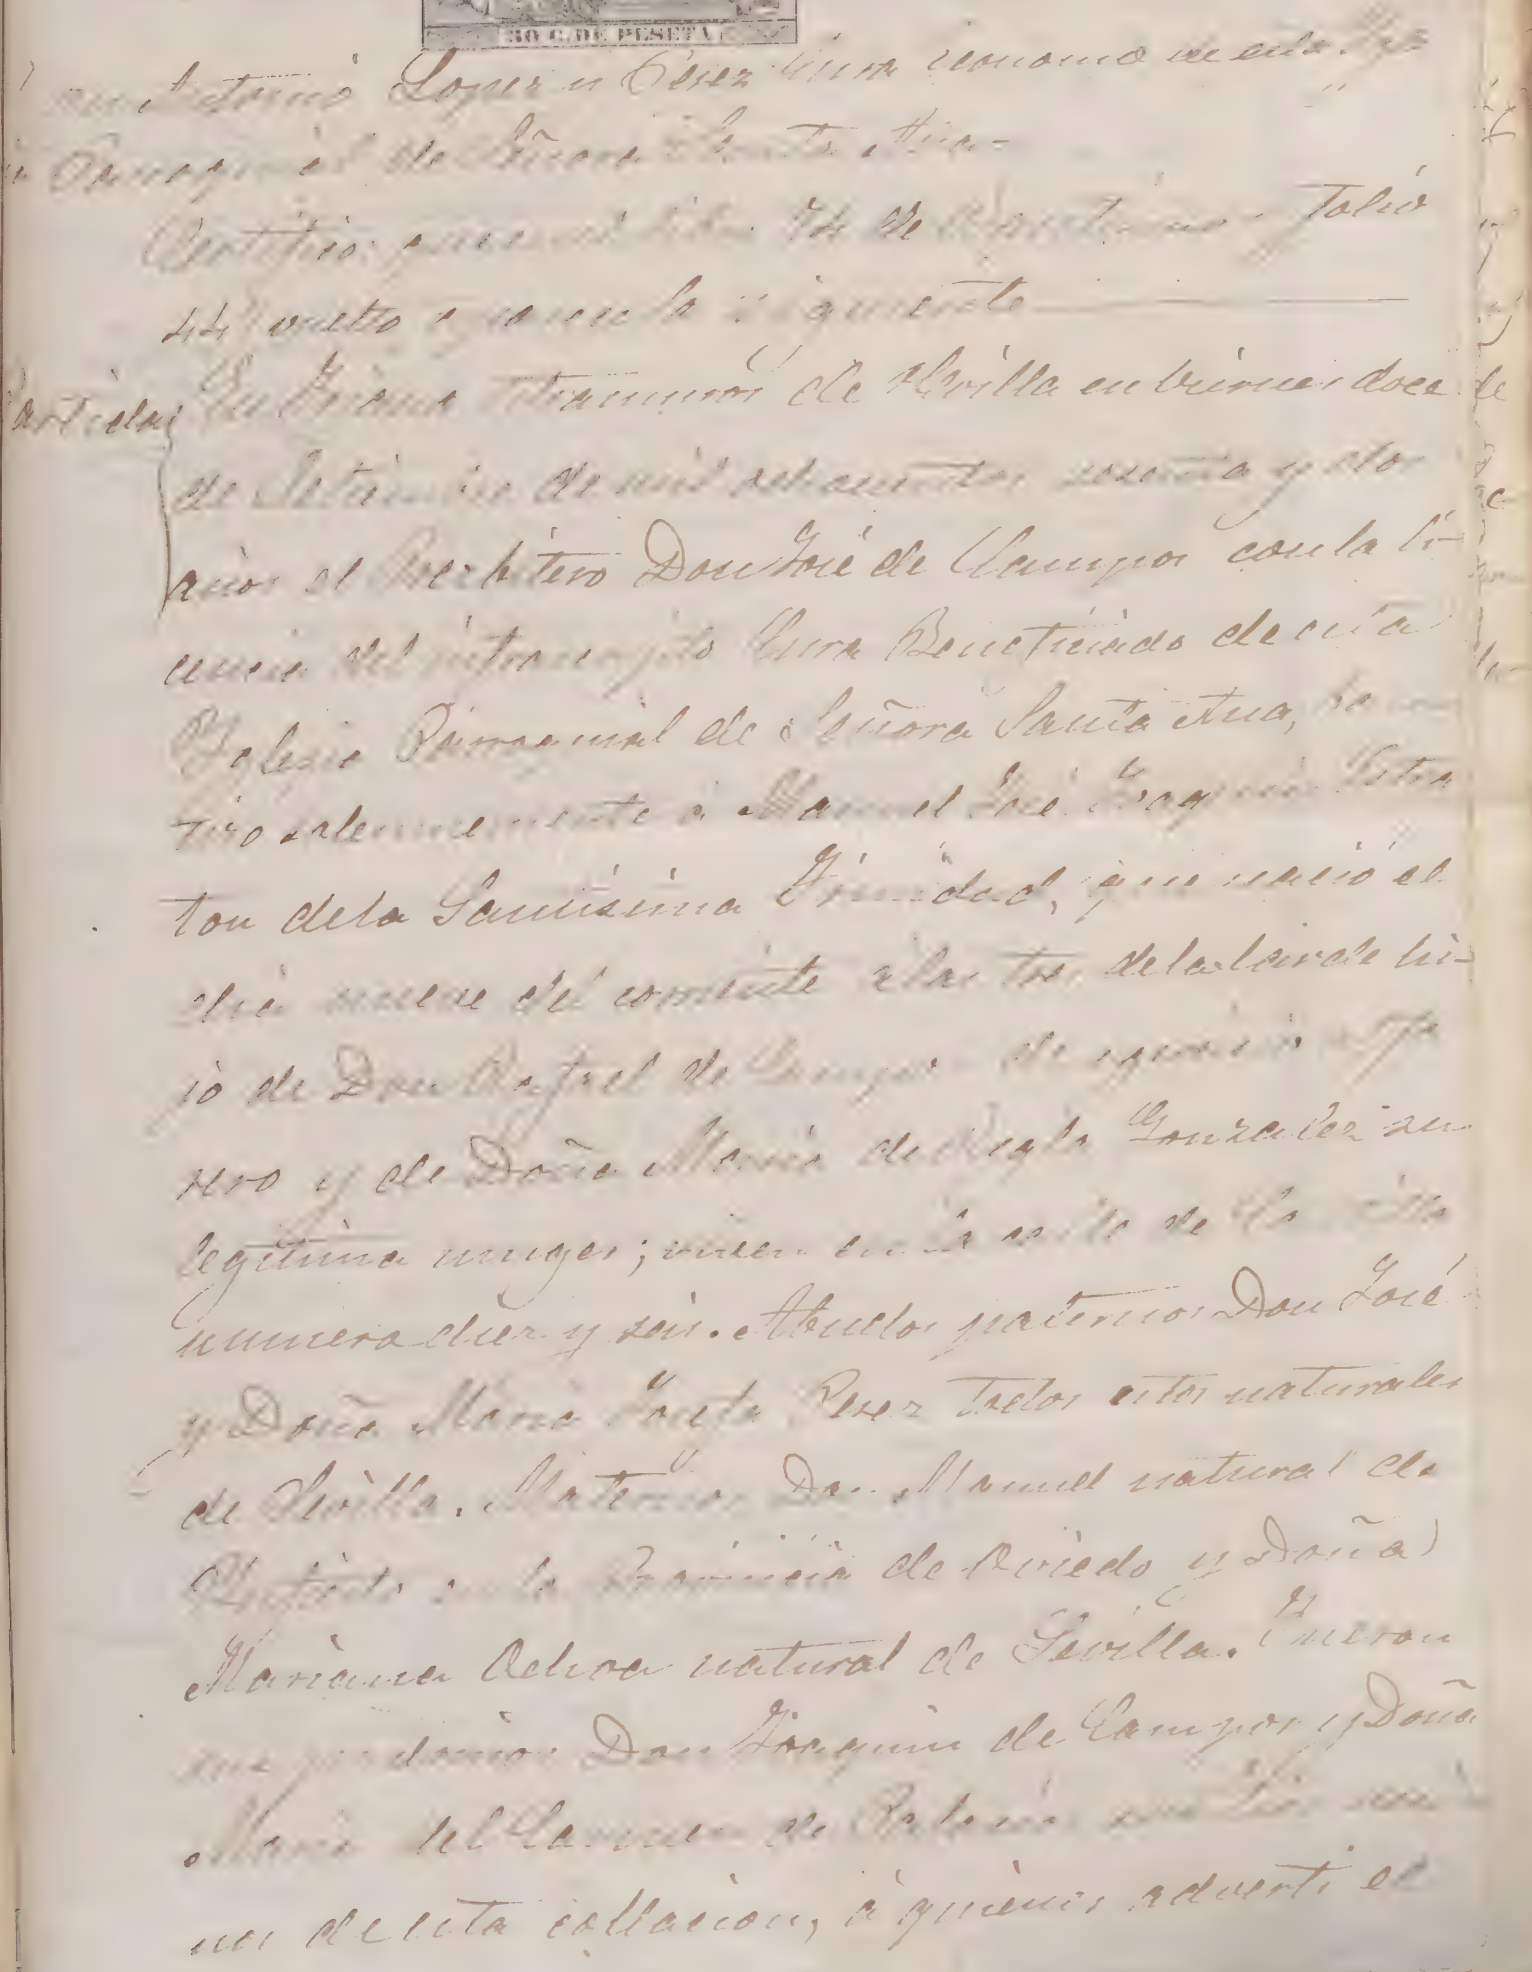 50 C. DE PESETA
Antonio Lopez y Perez Cura economo de esta Ygle
Parroquial de Señora Santa Ana-
Certifico: que en el libro 74 de Bautismos folio
44 vuelto aparece la siguiente
Partida En Triana extramuros de Sevilla en viernes doce
de Setiembre de mil ochocientos sesenta y dos
años el Presbitero Don José de Campos con la li-
cencia del infrascrito Cura Beneficiado de esta
Yglesia Parroquial de Señora Santa Ana, bau
tizo solemnemente á Manuel José Joaquin
ton dela Santisima Trinidad, que nació el
dia nueve del corriente á las tres dela tarde hi-
jo de Don Rafael de Campos de egercicio
rero y de Doña Maria de Regla Gonzalez su
legitima muger; viven en la calle de
numero diez y seis. Abuelos paternos Don José
y Doña Maria Josefa Perez todos estos naturales
de Sevilla. Maternos Don Manuel natural de
en la Provincia de Oviedo y Doña
Mariana Ochoa natural de Sevilla. Fueron
sus padrinos Don Joaquin de Campos y Doña
Maria del Carmen de
nos de esta collacion, á quienes adverti el